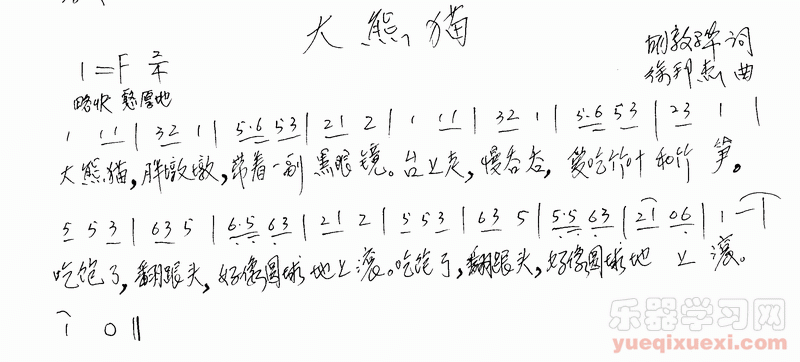 大熊猫
胡敦骅 词
1=F 2/4
徐邦杰 曲
略快 憨厚地
1 11 | 32 1 | 5·6 53 | 21 2 | 1 11 | 32 1 | 5·6 53 | 23 1 |
大熊猫,胖墩墩,带着一副黑眼镜。台上走,慢吞吞,爱吃竹叶和竹笋。
5 53 | 63 5 | 6·5 63 | 21 2 | 5 53 | 63 5 | 5·5 63 | 21 06 | 1 — |
吃饱了,翻跟头,好像圆球地上滚。吃饱了,翻跟头,好像圆球地上滚。
1 0 ‖
乐器学习网
yueqixuexi.com